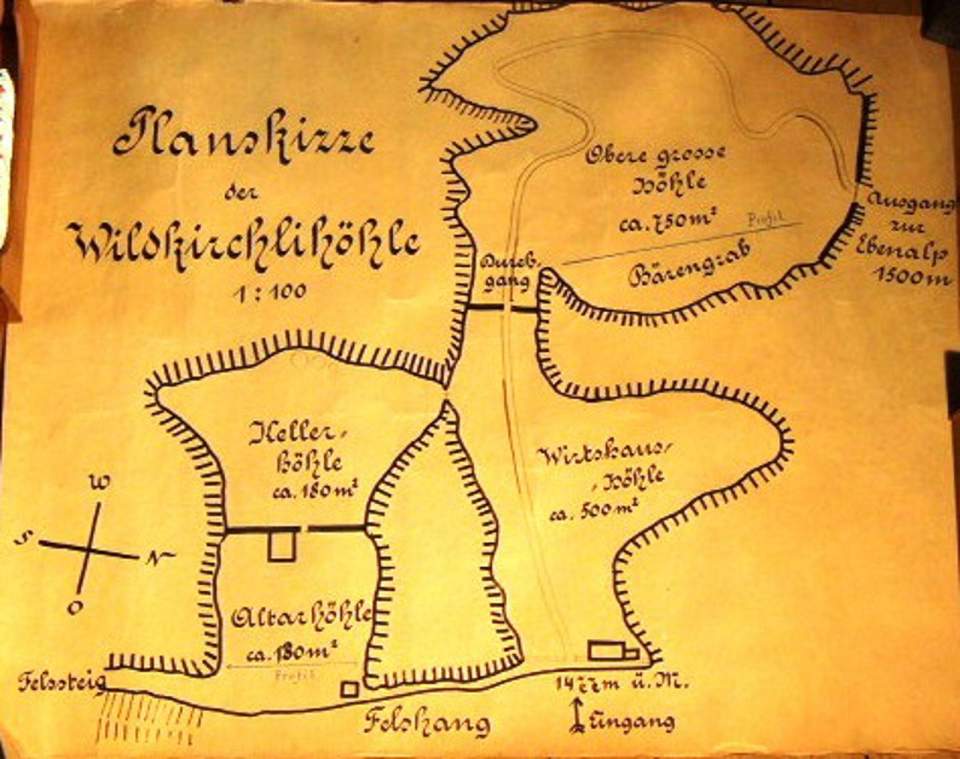 Planskizze
der
Wildkirchlihöhle
1:100
Obere grosse
Höhle
ca. 750m²
Profil
Bärengrab
Ausgang
zur
Ebenalp
1500m
Durch-
gang
Keller-
höhle
ca. 180m²
Wirtshaus-
höhle
ca. 500m²
W
S
N
O
Altarhöhle
ca. 180m²
Profil
Felssteig
Felshang
m ü. M.
Eingang